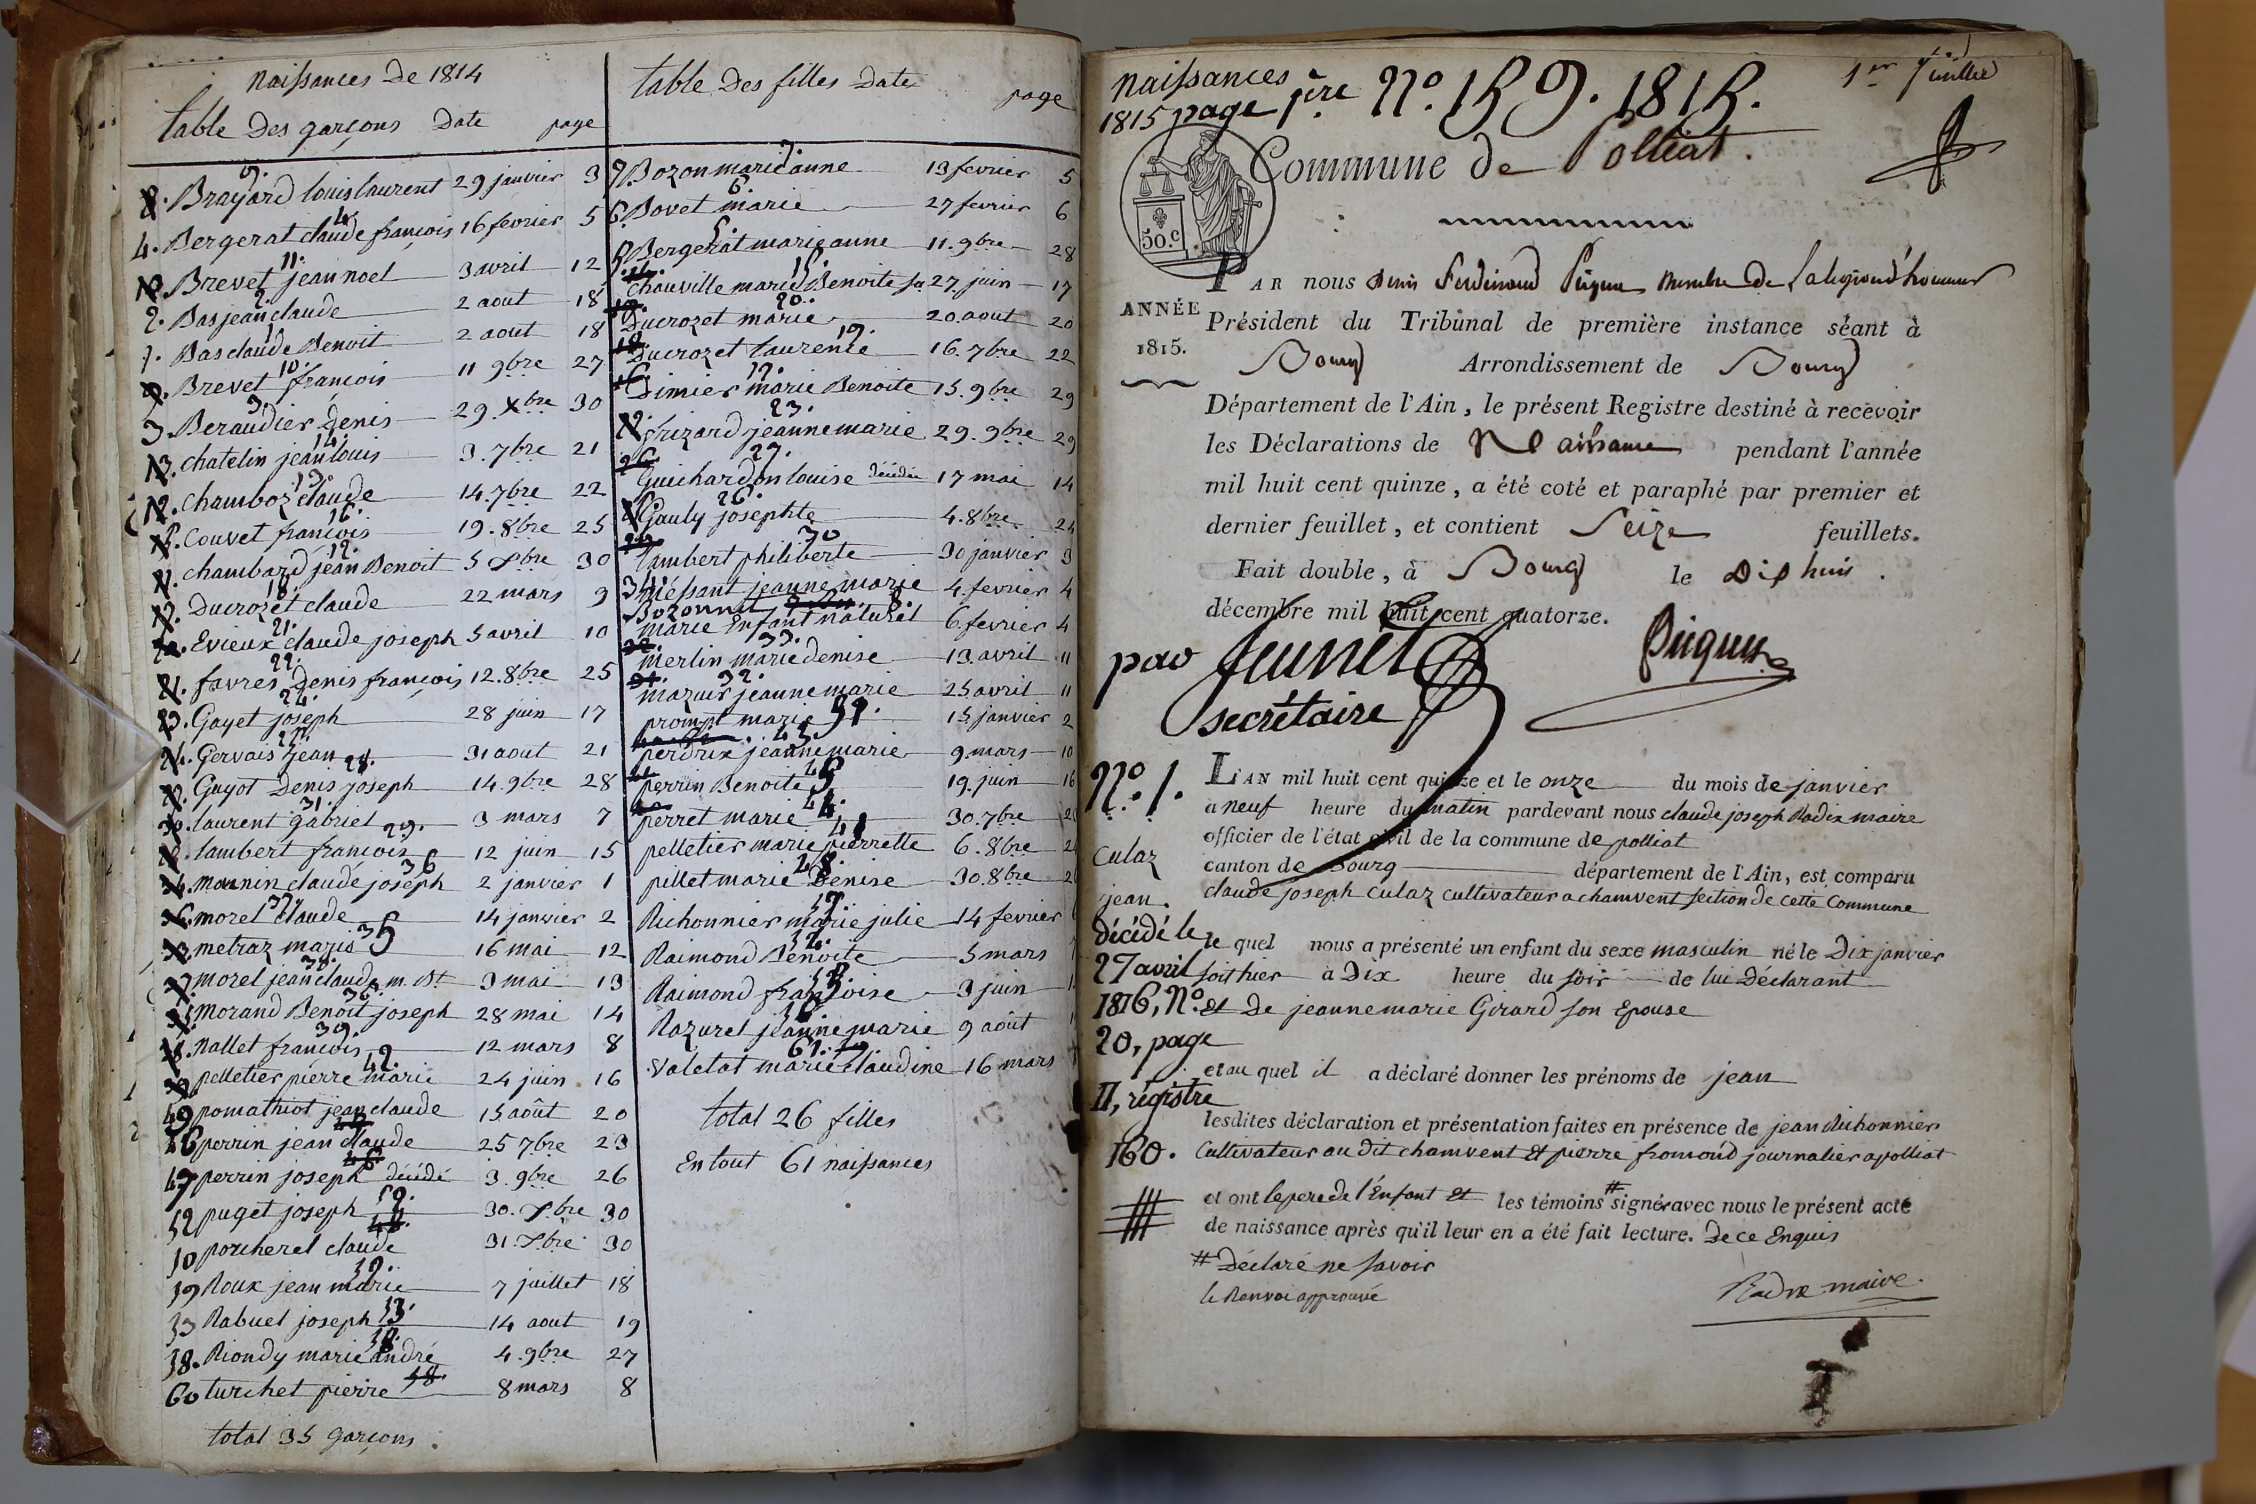 Naissances de 1814
table des garçons Date page
Brayard louis laurent 29 janvier 3
4. Bergerat claude françois 16 fevrier 5
Brevet jean noel 3 avril 12
2. Bas jean claude 2 aout 18
1. Bas claude Benoit 2 aout 18
Brevet françois 11 9bre 27
3. Beraudier denis 29 Xbre 30
chatelin jean louis 3. 7bre 21
Chamboz claude 14. 7bre 22
Couvet françois 19. 8bre 25
chambard jean Benoit 5 Xbre 30
Ducrozet claude 22 mars 9
Evieux claude joseph 5 avril 10
favres Denis françois 12. 8bre 25
Gayet joseph 28 juin 17
Gervais jean 31 aout 21
Guyot Denis joseph 14. 9bre 28
laurent gabriel 3 mars 7
lambert françois 12 juin 15
Monnin claude joseph 2 janvier 1
morel claude 14 janvier 2
metraz maris 16 mai 12
morel jean claude m. Bt 3 mai 13
Morand Benoit joseph 28 mai 14
Nallet françois 12 mars 8
pelletier pierre marie 24 juin 16
49 pomathiot jean claude 15 août 20
46 perrin jean claude 25 7bre 23
47 perrin joseph décédé 3. 9bre 26
52 puget joseph 30. Xbre 30
50 porcherel claude 31. Xbre 30
59 Roux jean marie 7 juillet 18
53 Rabuel joseph 14 aout 19
58. Riondy marie andré 4. 9bre 27
60 turchet pierre 8 mars 8
total 35 garçons.
table des filles Date page
7. Bozon marie anne 13 fevrier 5
6. Bovet marie 27 fevrier 6
5. Bergerat marie anne 11. 9bre 28
Chauville marie Benoite 27 juin 17
Ducrozet marie 20. aout 20
Ducrozet laurence 16. 7bre 22
Dimier marie Benoite 15. 9bre 29
frizard jeanne marie 29. 9bre 29
Guichardon louise décédée 17 mai 14
Gauly josephte 4. 8bre 24
lambert philiberte 30 janvier 3
Messant jeanne marie 4. fevrier 4
Bozonnet
marie Enfant naturel 6 fevrier 4
Merlin marie denise 13. avril 11
mazuir jeanne marie 25 avril 11
prompt marie 15 janvier 2
perdrix jeanne marie 9 mars 10
perrin Benoite 19. juin 16
perret marie 30. 7bre
pelletier marie pierrette 6. 8bre
pillet marie Denise 30. 8bre
Richonnier marie julie 14 fevrier
Raimond Benoite 5 mars
Raimond françoise 3 juin
Razurel jeanne marie 9 août
Valetat marie claudine 16 mars
total 26 filles
En tout 61 naissances
naissances
1815 page 1ère N°. 159. 1815.
1er feuillet
Commune de Polliat.
50.c
PAR nous Denis Ferdinand Piquet Membre de la legion d'honneur
ANNÉE
1815.
Président du Tribunal de première instance séant à
Bourg Arrondissement de Bourg
Département de l'Ain, le présent Registre destiné à recevoir
les Déclarations de Naissance pendant l'année
mil huit cent quinze, a été coté et paraphé par premier et
dernier feuillet, et contient Seize feuillets.
Fait double, à Bourg le Dix huit.
décembre mil huit cent quatorze.
par Jeunet
secrétaire
Piquet
N°. 1. L'AN mil huit cent quinze et le onze du mois de janvier
a neuf heure du matin pardevant nous claude joseph Rodix maire
officier de l'état civil de la commune de polliat
canton de Bourg département de l'Ain, est comparu
claude joseph Culaz cultivateur a chamvent section de cette Commune
Culaz
jean.
le quel nous a présenté un enfant du sexe masculin né le Dix janvier
soit hier à Dix heure du soir de lui Déclarant
et De jeanne marie Girard son Epouse
décédé le
27 avril
1816, N°.
20, page
II, régistre
160.
et au quel il a déclaré donner les prénoms de jean
lesdites déclaration et présentation faites en présence de jean Richonnier
Cultivateur au dit chamvent Et pierre fromond journalier a polliat
et ont le pere de l'Enfant Et les témoins # signés avec nous le présent acte
de naissance après qu'il leur en a été fait lecture. De ce Enquis
# Déclaré ne savoir
le Renvoi approuvé
Rodix maire.